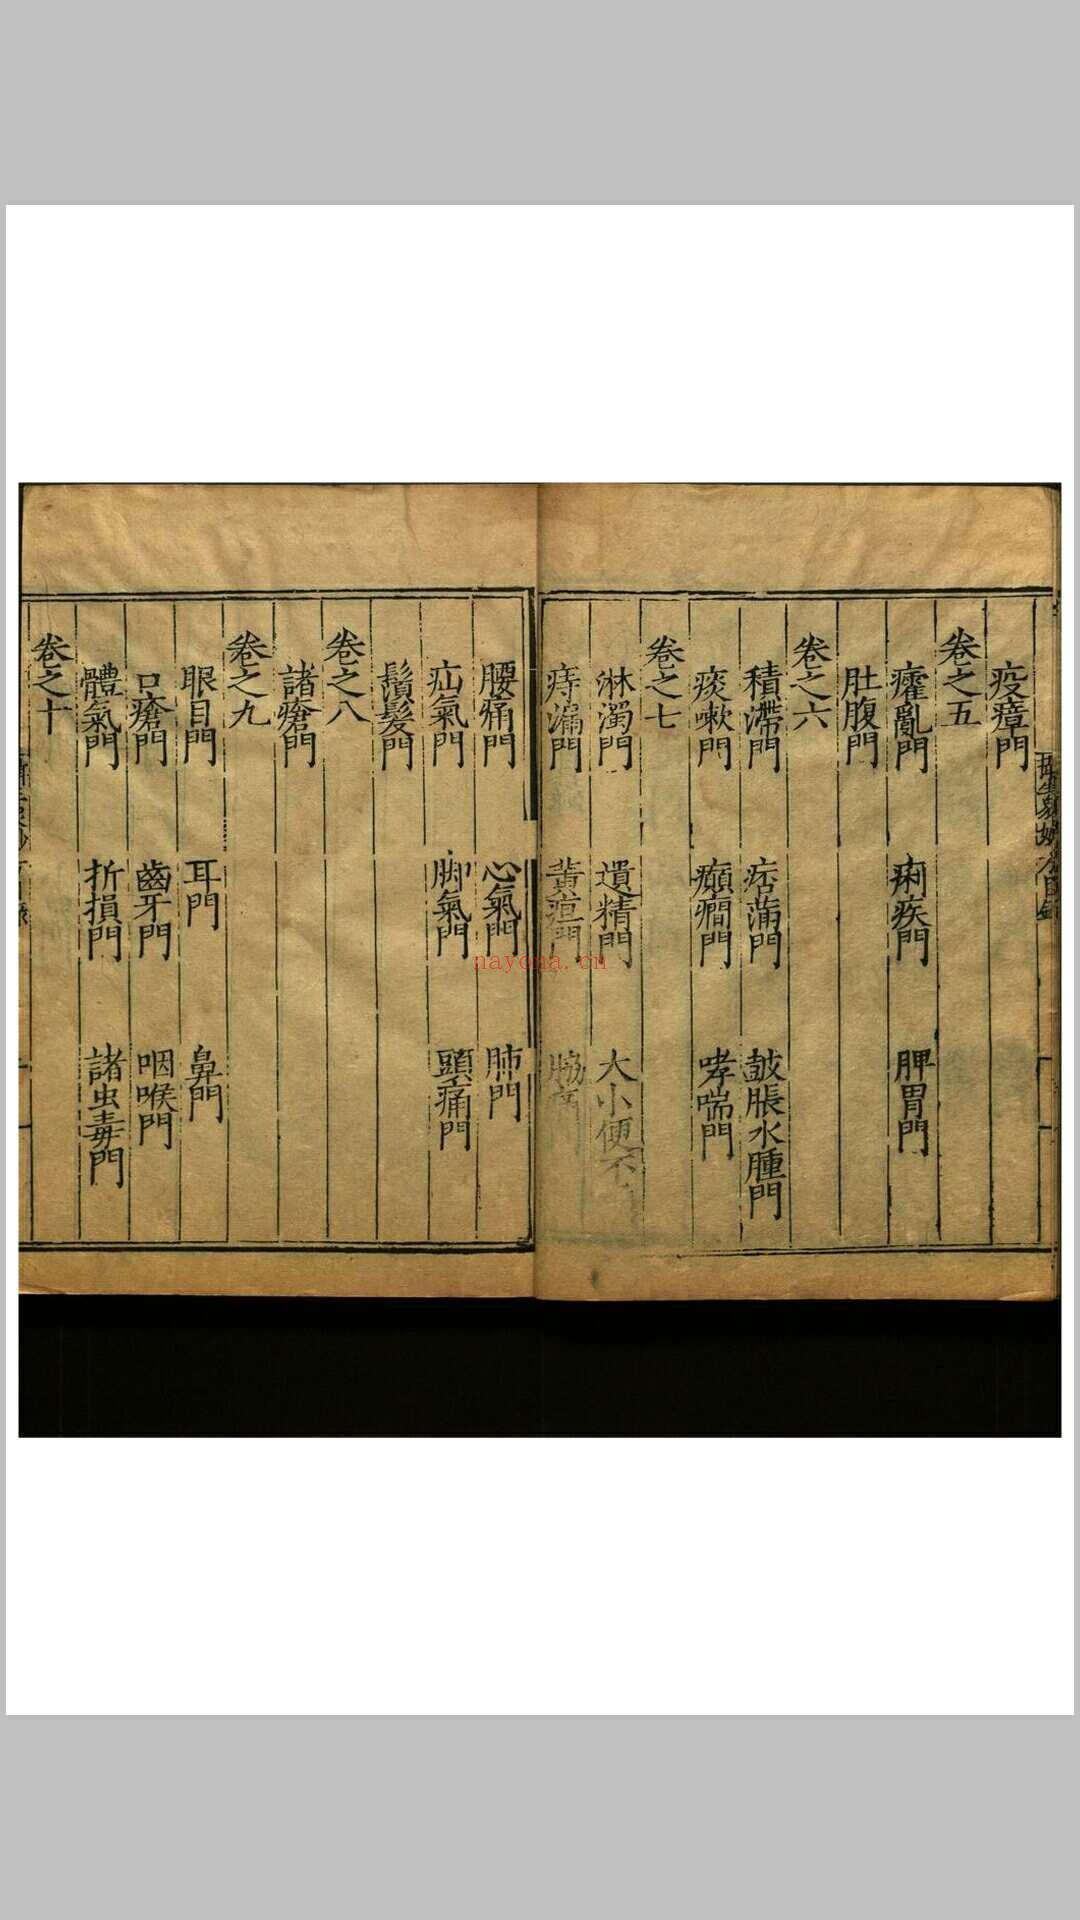 疫瘴門
卷之五
癨亂門 痢疾門 脾胃門
肚腹門
卷之六
積滯門 痞蒲門 皷脹水腫門
痰嗽門 癲癇門 哮喘門
卷之七
淋濁門 遺精門 大小便不
痔漏門 黃疸門 脇痛
腰痛門 心氣門 肺門
疝氣門 脚氣門 頭痛門
鬚髮門
卷之八
諸瘡門
卷之九
眼目門 耳門 鼻門
口瘡門 齒牙門 咽喉門
體氣門 折損門 諸虫毒門
卷之十
nayona.cn